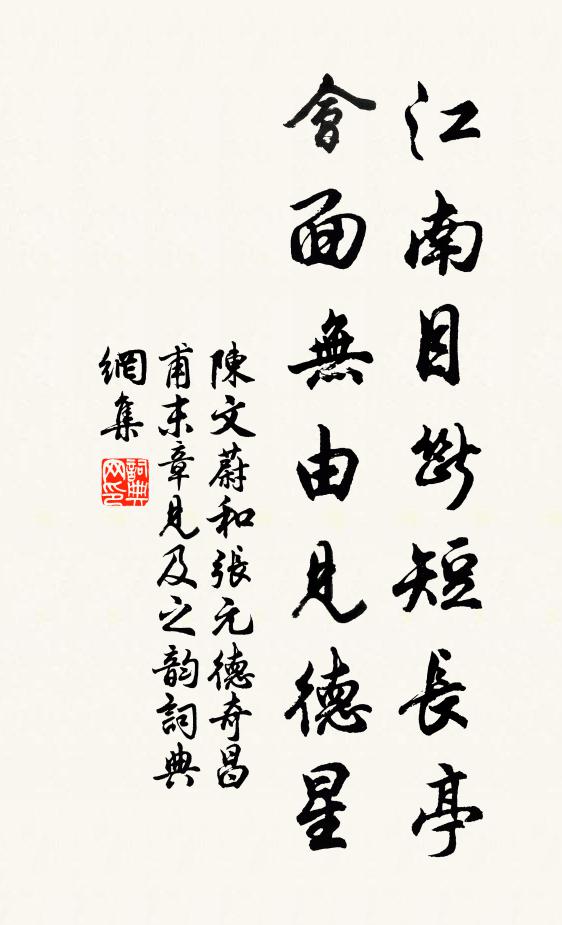 江南目斷短長亭
會面無由見德星
陳文蔚和張元德奇昌
甫末章見及之韵詞典
網集
詞典網印